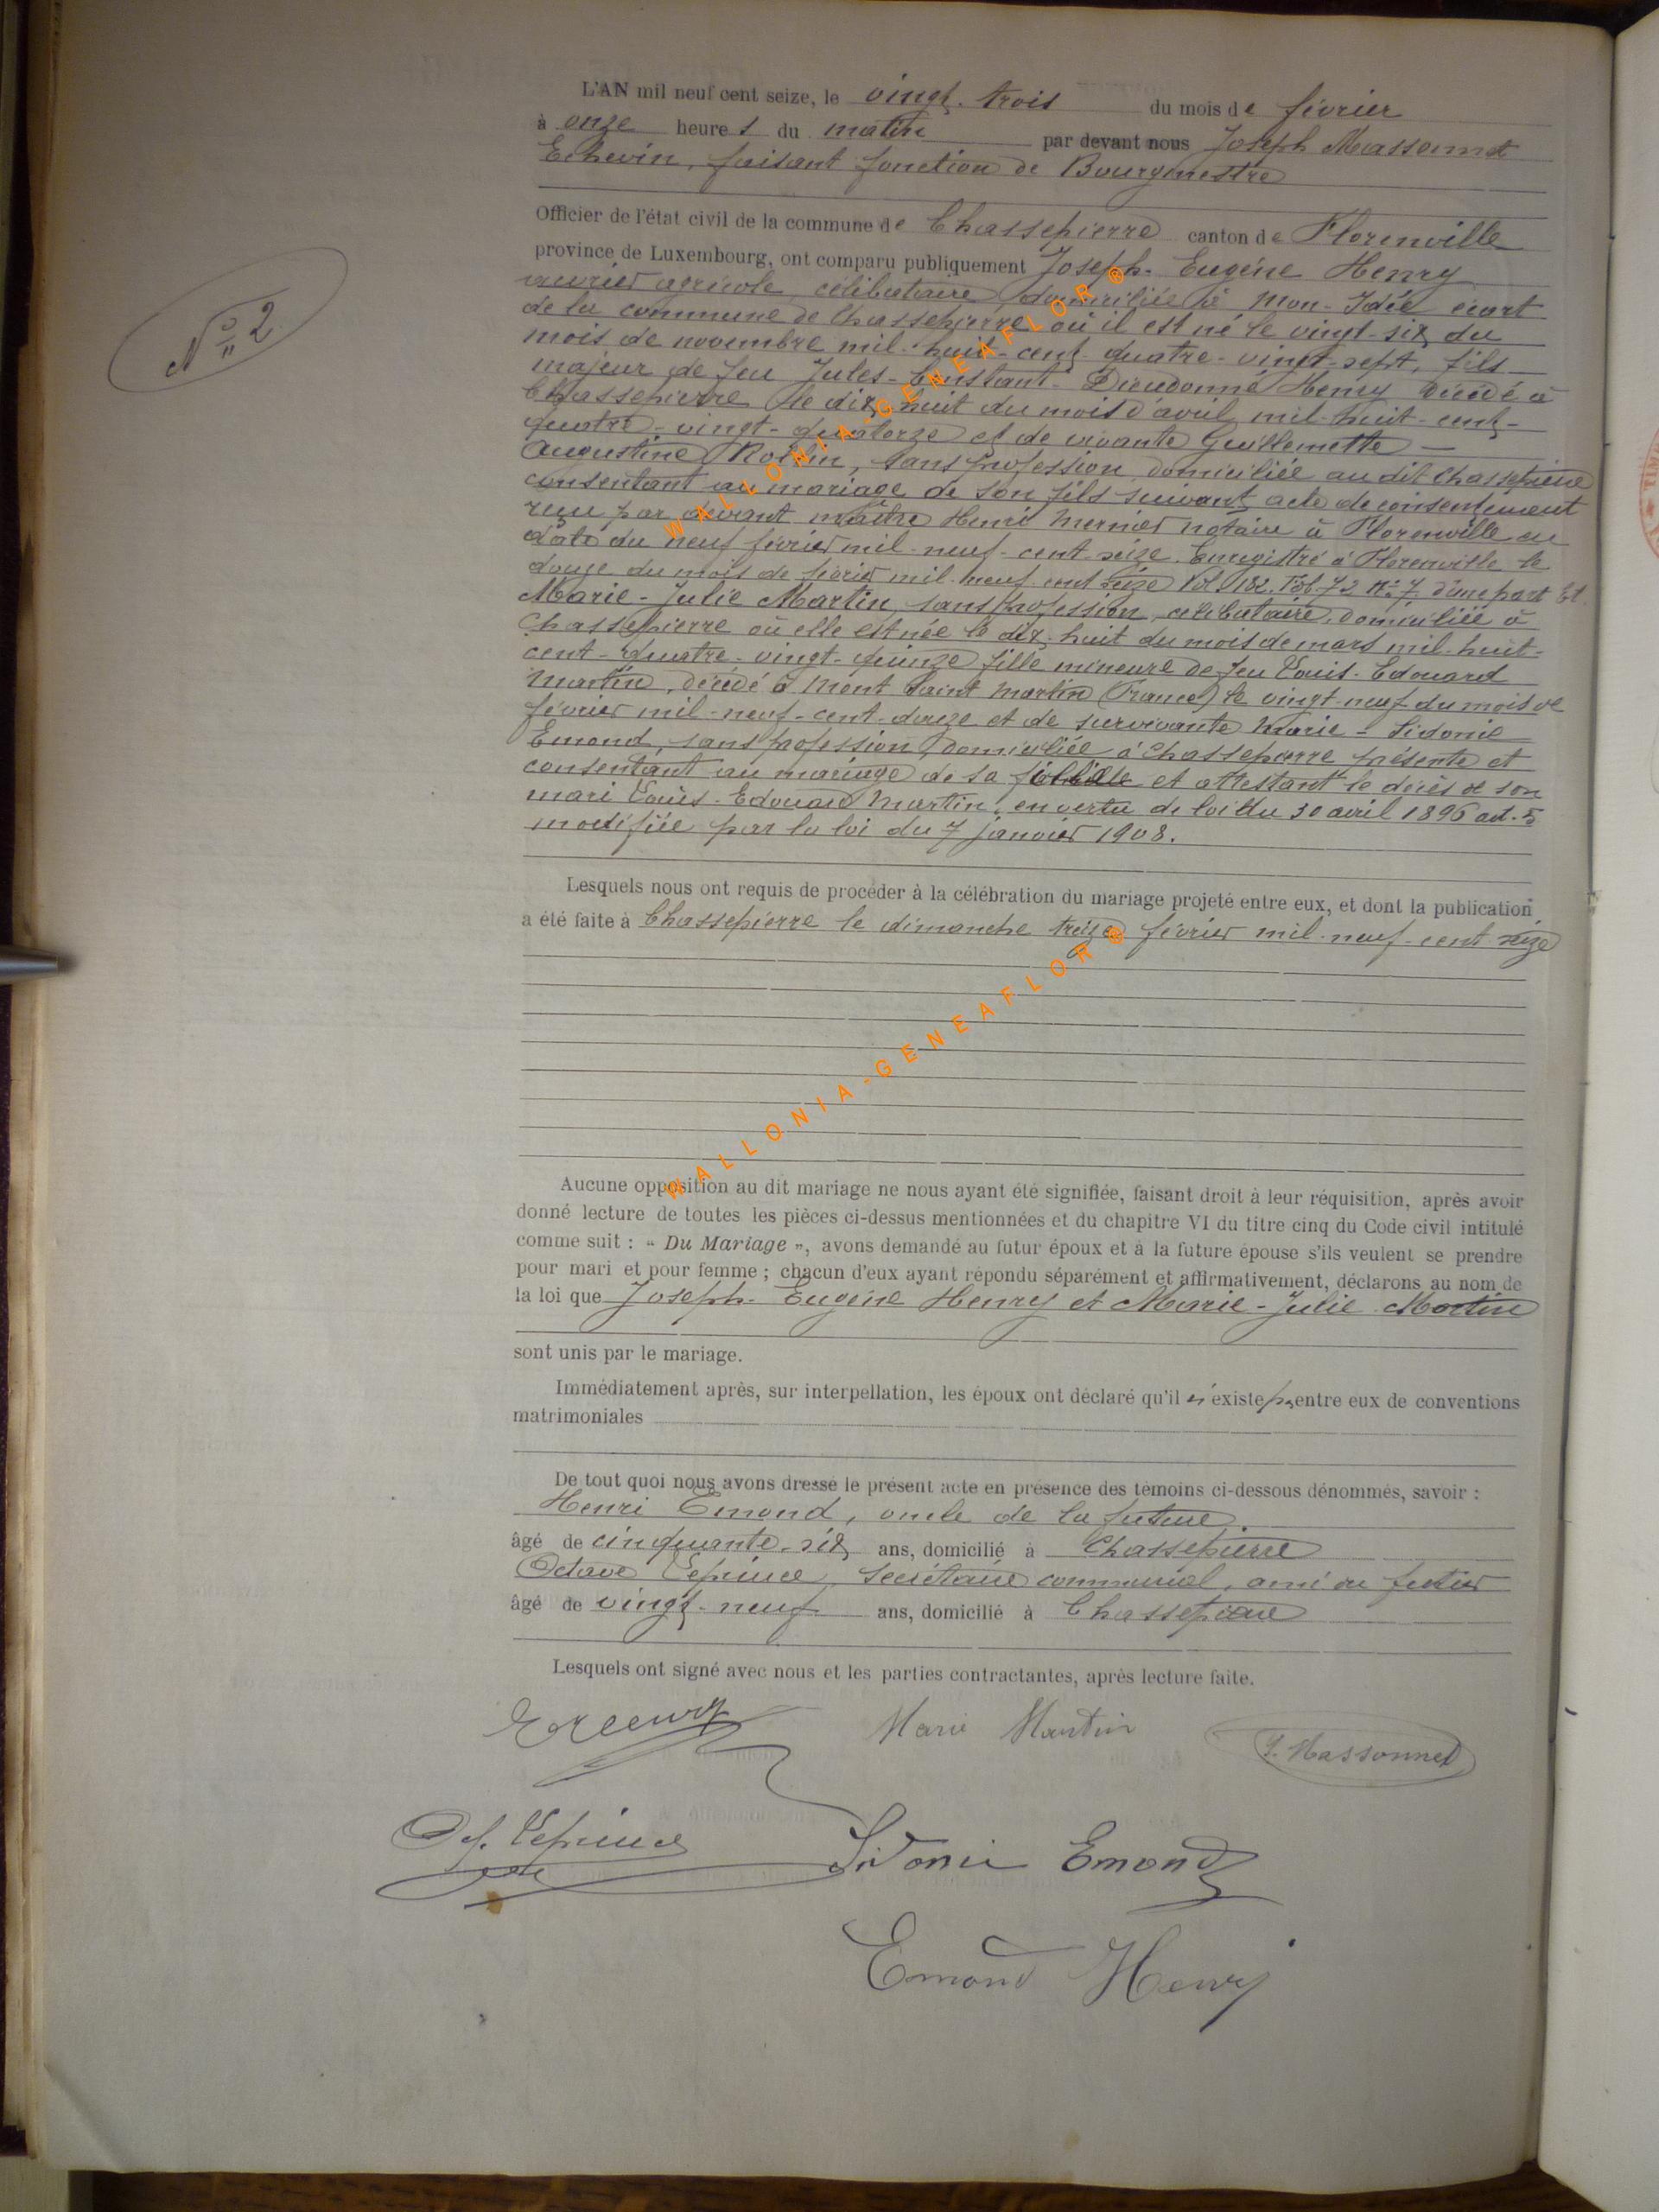 N° 2
L'AN mil neuf cent seize, le vingt-trois du mois de février
à onze heures du matin par devant nous Joseph Massonnet
Echevin, faisant fonction de Bourgmestre
Officier de l'état civil de la commune de Chassepierre canton de Florenville
province de Luxembourg, ont comparu publiquement Joseph-Eugène Henry
ouvrier agricole, célibataire domicilié à Mon-Idée écart
de la commune de Chassepierre où il est né le vingt-six du
mois de novembre mil-huit-cent-quatre-vingt-sept, fils
majeur de feu Jules-Constant-Dieudonné Henry décédé à
Chassepierre le dix-huit du mois d'avril mil-huit-cent-
quatre-vingt-quatorze et de vivante Guillemette
Augustine Rollin, sans profession domiciliée au dit Chassepierre
consentant au mariage de son fils suivant acte de consentement
reçu par devant maître Henri Mernier notaire à Florenville en
date du neuf février mil-neuf-cent-seize. Enregistré à Florenville le
douze du mois de février mil-neuf-cent seize Vol 182. Fol. 72 N° 7. d'une part Et
Marie-Julie Martin, sans profession, célibataire, domiciliée à
Chassepierre où elle est née le dix-huit du mois de mars mil-huit-
cent-quatre-vingt-quinze fille mineure de feu Louis-Edouard
Martin, décédé à Mont Saint Martin (France) le vingt-neuf du mois de
février mil-neuf-cent-douze et de survivante Marie-Sidonie
Emond, sans profession, domiciliée à Chassepierre présente et
consentant au mariage de sa fille et attestant le décès de son
mari Louis-Edouard Martin, en vertu de loi du 30 avril 1896 art. 5
modifiée par la loi du 7 janvier 1908.
Lesquels nous ont requis de procéder à la célébration du mariage projeté entre eux, et dont la publication
a été faite à Chassepierre le dimanche treize février mil-neuf-cent-seize
Aucune opposition au dit mariage ne nous ayant été signifiée, faisant droit à leur réquisition, après avoir
donné lecture de toutes les pièces ci-dessus mentionnées et du chapitre VI du titre cinq du Code civil intitulé
comme suit : « Du Mariage », avons demandé au futur époux et à la future épouse s'ils veulent se prendre
pour mari et pour femme ; chacun d'eux ayant répondu séparément et affirmativement, déclarons au nom de
la loi que Joseph-Eugène Henry et Marie-Julie Martin
sont unis par le mariage.
Immédiatement après, sur interpellation, les époux ont déclaré qu'il n'existe pas entre eux de conventions
matrimoniales
De tout quoi nous avons dressé le présent acte en présence des témoins ci-dessous dénommés, savoir :
Henri Emond, oncle de la future.
âgé de cinquante-six ans, domicilié à Chassepierre
Octave Lépine, secrétaire communal, ami du futur
âgé de vingt-neuf ans, domicilié à Chassepierre
Lesquels ont signé avec nous et les parties contractantes, après lecture faite.
Marie Martin
J. Massonnet
Sidonie Emond
Emond Henry
WALLONIA-GENEAFLOR ®
WALLONIA-GENEAFLOR ®